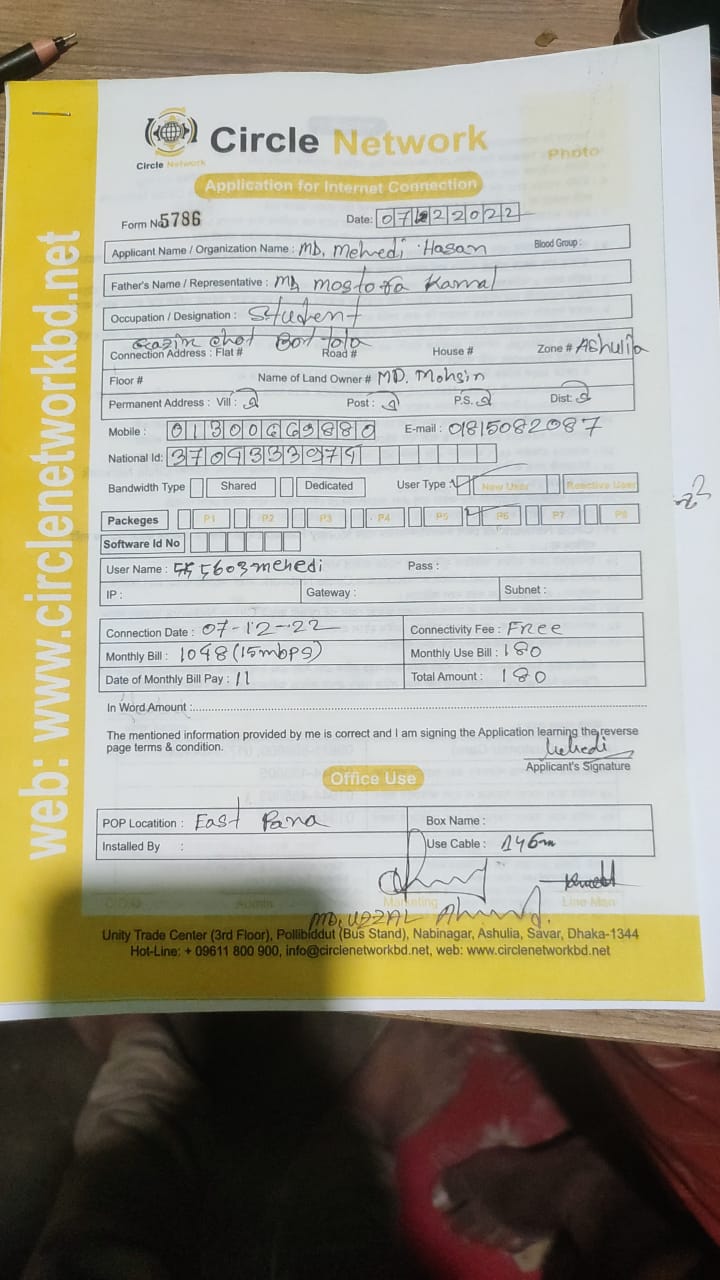 Circle Network
Circle Network
Photo
Application for Internet Connection
Form No 5786
Date: 07122022
Applicant Name / Organization Name : MD. Mehedi Hasan Blood Group :
Father's Name / Representative : MD mostofa Kamal
Occupation / Designation : Student
Gazir chot Bot tola
Connection Address : Flat # Road # House # Zone # AShulia
Floor # Name of Land Owner # MD. Mohsin
Permanent Address : Vill : Post : P.S. Dist:
Mobile : 01300669880 E-mail : 01815082087
National Id: 3704333974
Bandwidth Type Shared Dedicated User Type : New User Reactive User
Packeges P1 P2 P3 P4 P5 P6 P7 P8
Software Id No
User Name : 5603mehedi Pass :
IP : Gateway : Subnet :
Connection Date : 07-12-22 Connectivity Fee : Free
Monthly Bill : 1048 (15mbps) Monthly Use Bill : 180
Date of Monthly Bill Pay : 11 Total Amount : 180
In Word Amount :
The mentioned information provided by me is correct and I am signing the Application learning the reverse
page terms & condition.
Mehedi
Applicant's Signature
Office Use
POP Locatition : East Para Box Name :
Installed By : Use Cable : 146m
C.O.O Admin Marketing Line Man
MD. UZZAL Ahmed.
Unity Trade Center (3rd Floor), Pollibiddut (Bus Stand), Nabinagar, Ashulia, Savar, Dhaka-1344
Hot-Line: + 09611 800 900, info@circlenetworkbd.net, web: www.circlenetworkbd.net
web: www.circlenetworkbd.net